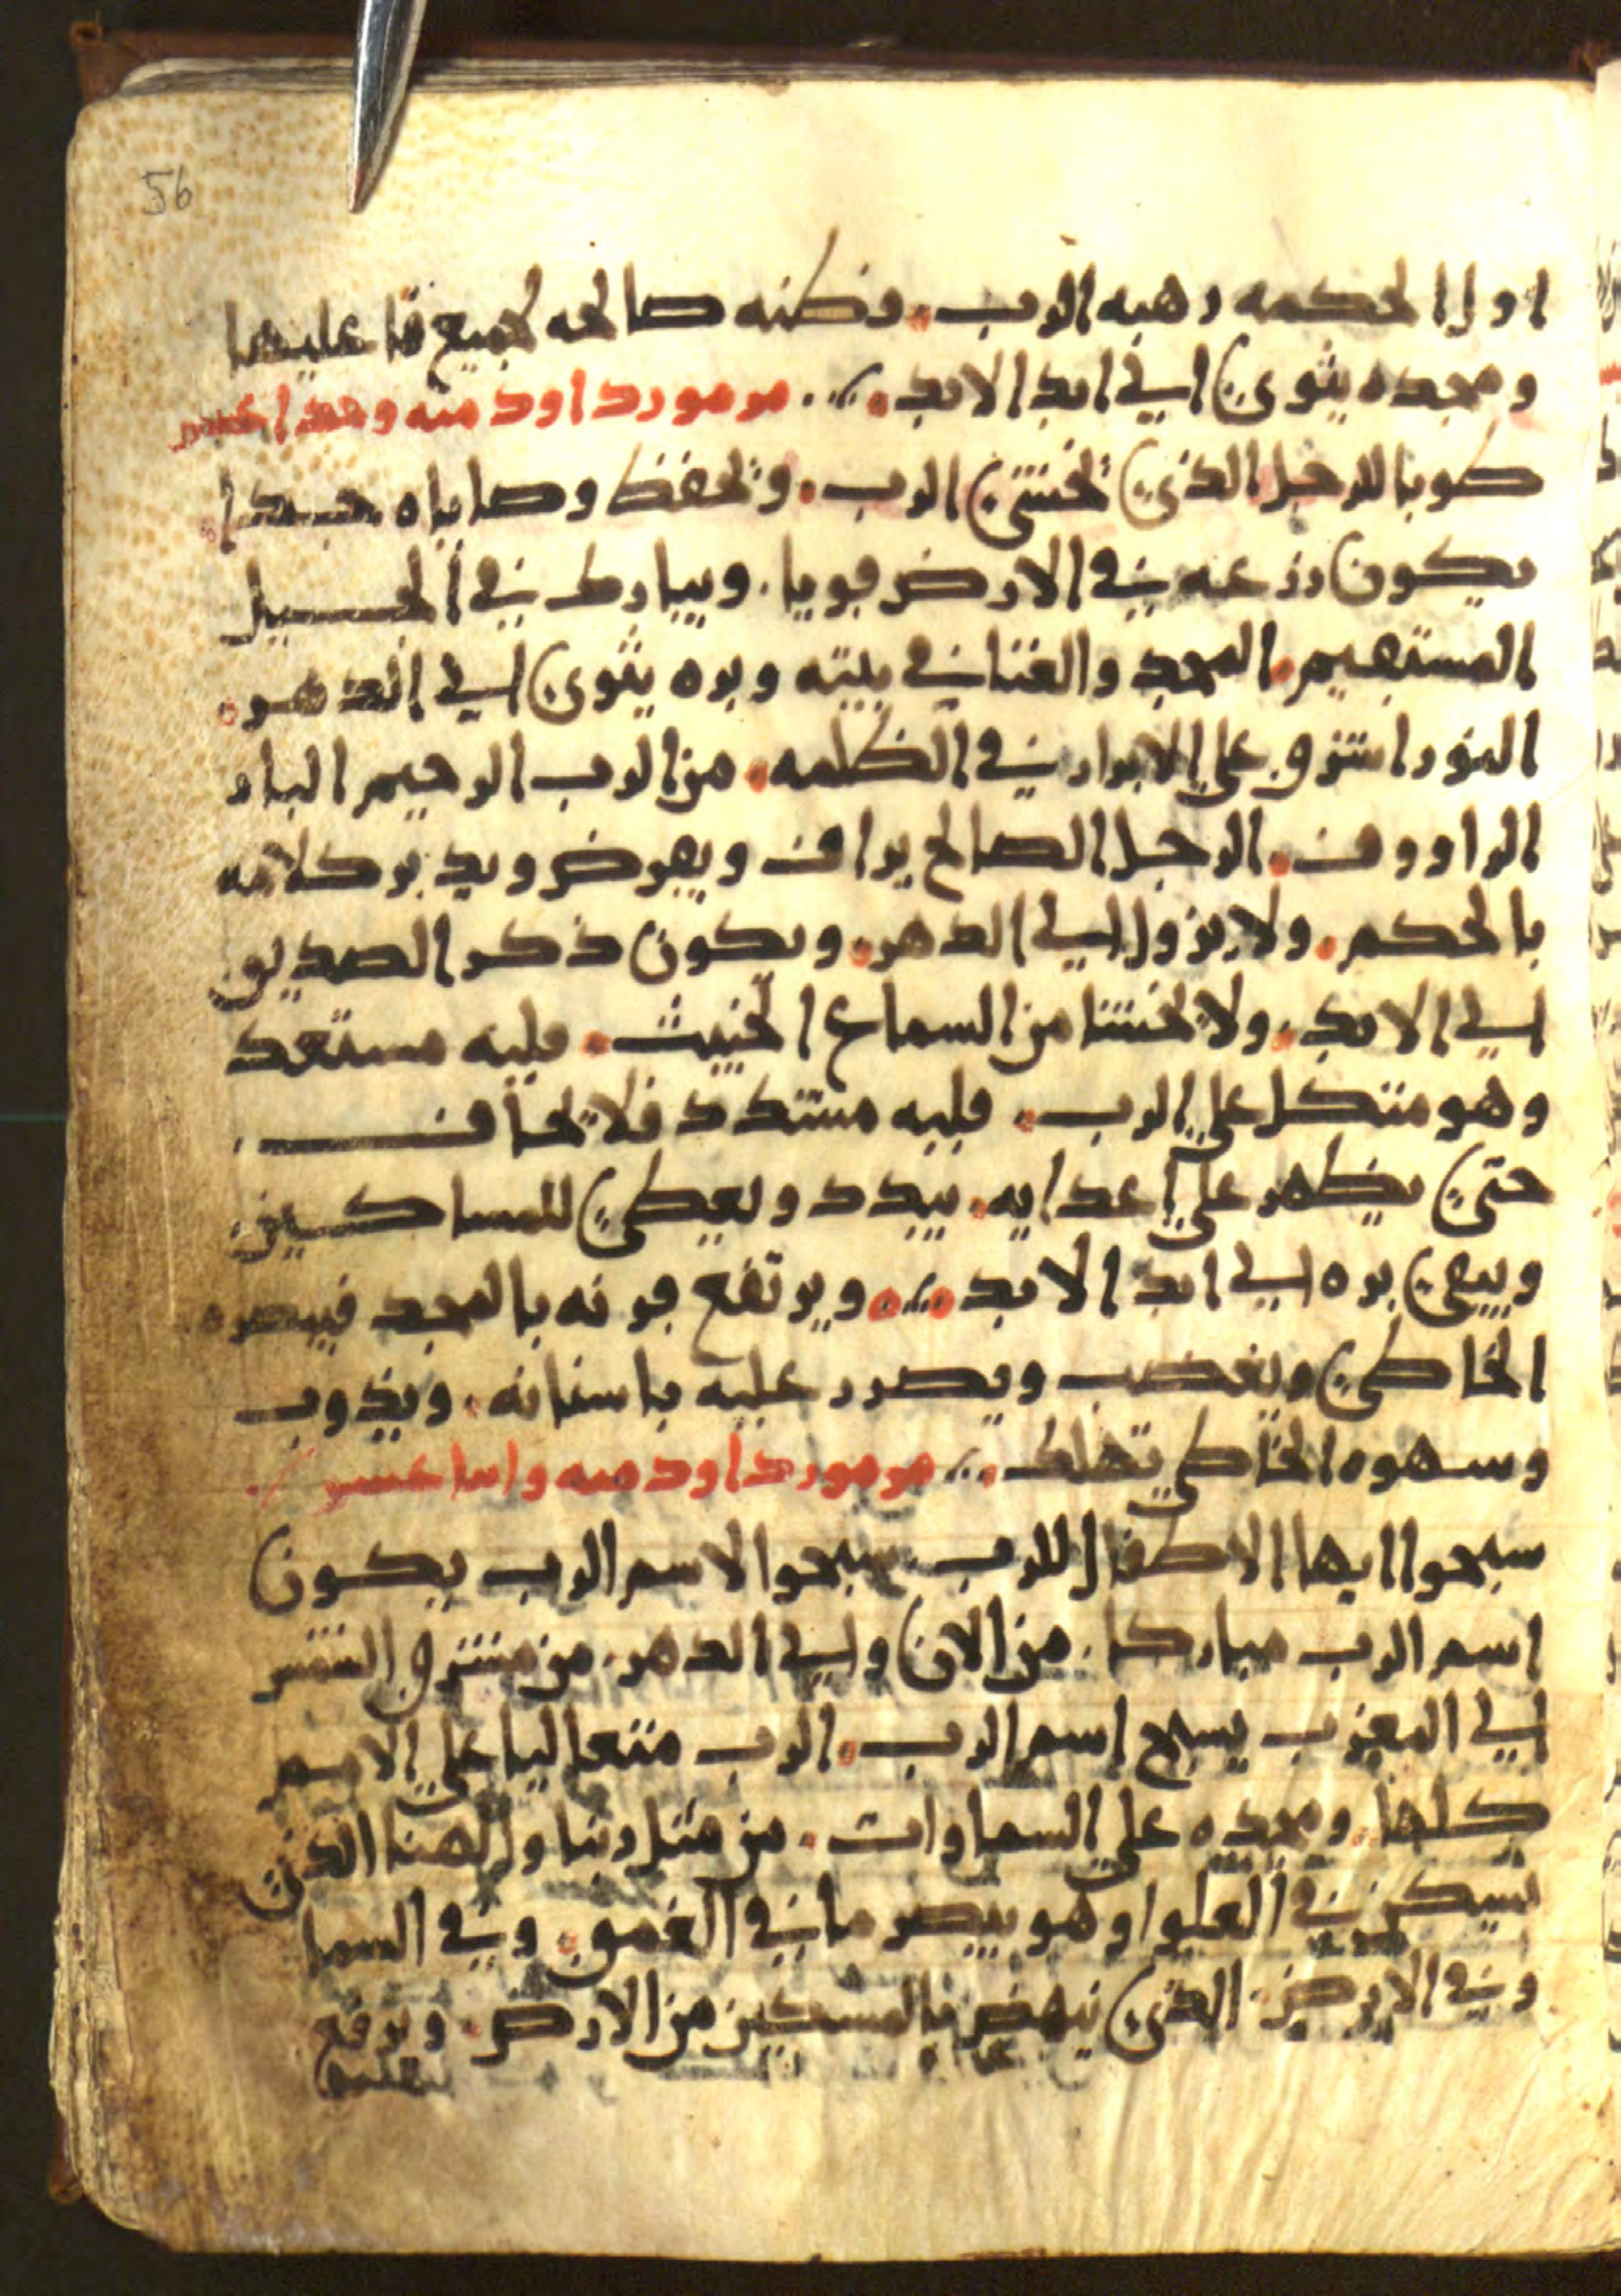 56
اول الحكمه رهبه الرب. فطنه صالحه لجميع فاعليها
ومجده يثوي الي ابد الابد ... مزمور داود منه
طوبا للرجل الذي يخشي الرب. ويحفظ وصاياه جدا
يكون زرعه في الارض قويا. ويبارك في الجيل
المستقيم. المجد والغنا في بيته وبره يثوي الي الدهر.
النور اشرق علي الابرار في الظلمه. من الرب الرحيم البار
الرا ووف. الرجل الصالح يراف ويقرض ويدبر كلامه
بالحكم. ولا يزول الي الدهر. ويكون ذكر الصديق
الي الابد. ولا يخشا من السماع الخبيث. قلبه مستعد
وهو متكل علي الرب. قلبه مشدد فلا يخاف
حتي يظهر علي اعدايه. يبدد ويعطي للمساكين
ويبقي بره الي ابد الابد ... ويرتفع قرنه بالمجد فيبصره
الخاطي ويغضب ويصرر عليه باسنانه. ويذوب
وسهوه الخاطي تهلك ... مزمور داود منه
سبحوا ايها الاطفال للرب. سبحوا لاسم الرب يكون
اسم الرب مباركا. من الان والي الدهر. من مشرق الشمس
الي المغرب يسبح اسم الرب. الرب متعاليا علي الامم
كلها. ومجده علي السماوات. من مثل ربنا والهنا الذي
يسكن في العلوا وهو يبصر ما في الغمق. وفي السما
وفي الارض. الذي ينهض بالمسكين من الارض. ويرفع